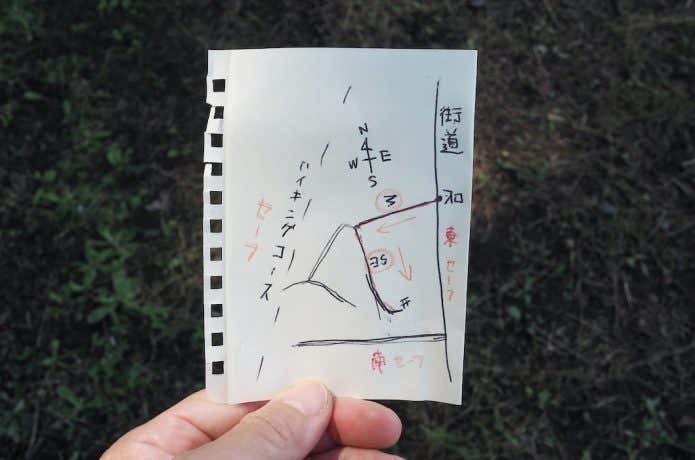 N
W E
S
街道
ハイキングコース
セーフ
東 セーフ
SE
南 セーフ